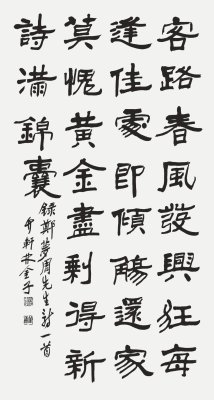 客路春風發興狂每
逢佳處即傾觴還家
莫愧黃金盡剩得新
詩滿錦囊
錄鄭夢周先生詩一首
軒林金子